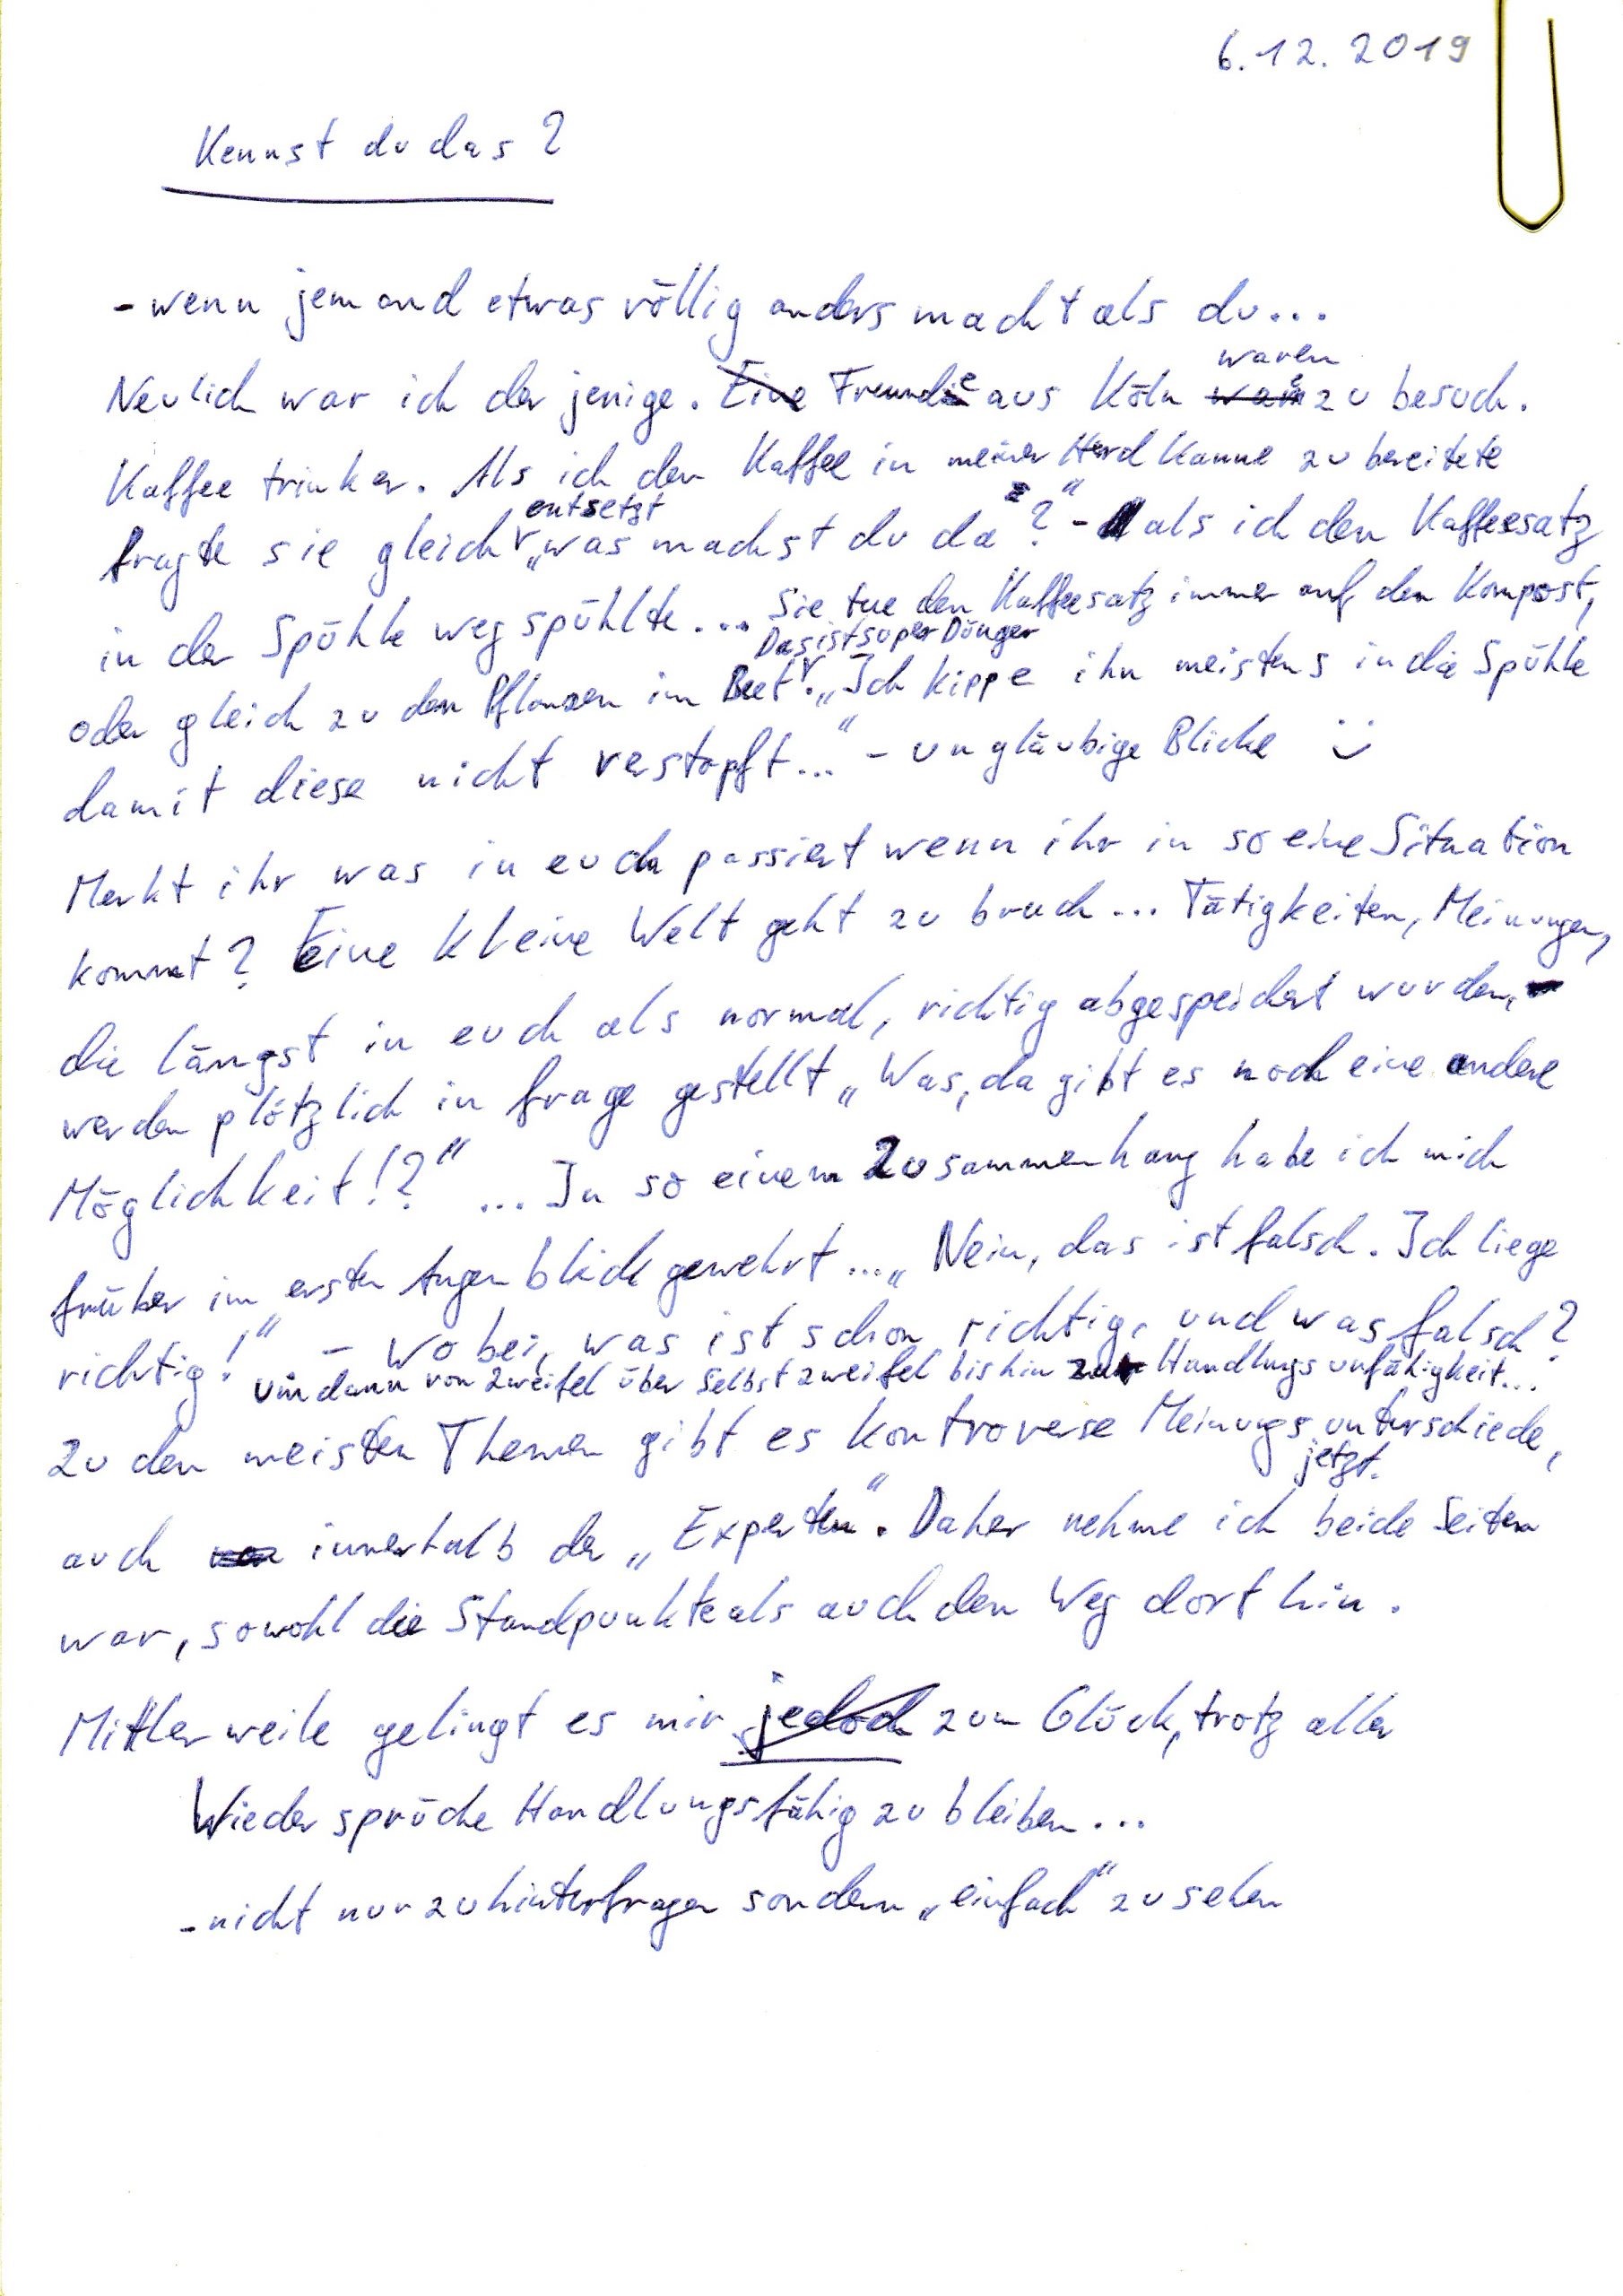 6.12.2019
Kennst du das?
- wenn jemand etwas völlig anders macht als du...
waren
Neulich war ich der jenige. Eine Freunde aus Köln war zu besuch.
Kaffee trinker. Als ich den Kaffee in meiner Herd Kanne zu bereitete
entsetzt
fragte sie gleich „was machst du da?" - als ich den Kaffeesatz
in der Spühle weg spühlte... Sie tue den Kaffeesatz immer auf den Kompost,
Das ist super Dünger
oder gleich zu den Pflanzen im Beet. „Ich kippe ihn meistens in die Spühle
damit diese nicht verstopft..." - ungläubige Blicke
Merkt ihr was in euch passiert wenn ihr in so eine Situation
kommt? Eine kleine Welt geht zu bruch... Tätigkeiten, Meinungen,
die längst in euch als normal, richtig abgespeichert wurden,
werden plötzlich in frage gestellt „Was, da gibt es noch eine andere
Möglichkeit!?" ... In so einem Zusammenhang habe ich mich
früher im ersten Augenblick gewehrt... „Nein, das ist falsch. Ich liege
richtig!" - wobei, was ist schon richtig, und was falsch?
um dann von Zweifel über Selbstzweifel bis hin zur Handlungsunfähigkeit...
Zu den meisten Themen gibt es kontroverse Meinungsunterschiede,
jetzt
auch innerhalb der „Experten". Daher nehme ich beide Seiten
war, sowohl die Standpunkte als auch den Weg dort hin.
Mittlerweile gelingt es mir jedoch zum Glück, trotz aller
Wiedersprüche Handlungsfähig zu bleiben...
- nicht nur zu hinterfragen sondern „einfach" zu sehen